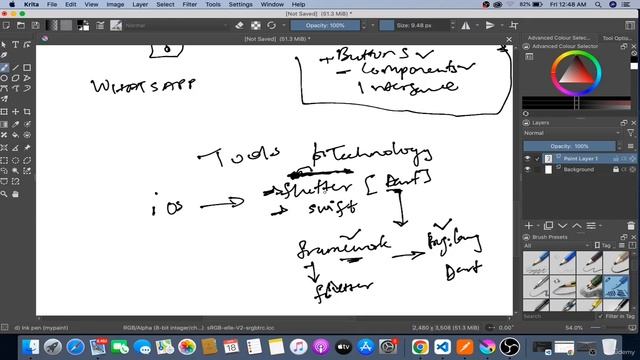 Krita
82%
Fri 12:48 AM
[Not Saved] (51.3 MiB)
Opacity: 100%
Size: 9.48 px
[Not Saved] (51.3 MiB)
Advanced Colour Selector
Tool Opt...
Advanced Colour Selector
+ Buttons
- Components
Interface
WHATSAPP
Tools & Technology
ios → → flutter [Dart]
→ swift
framework → Prog: lang
flutter
Dart
Layers
Normal
Opacity: 100%
Paint Layer 1
Background
Brush Presets
All
Tag
Search
Filter in Tag
ink pen (paint)
RGB/Alpha (8-bit integer/ch... sRGB-elle-V2-srgbtrc.icc
2,480 x 3,508 (51.3 MiB)
0.00°
54.0%
18
udemy